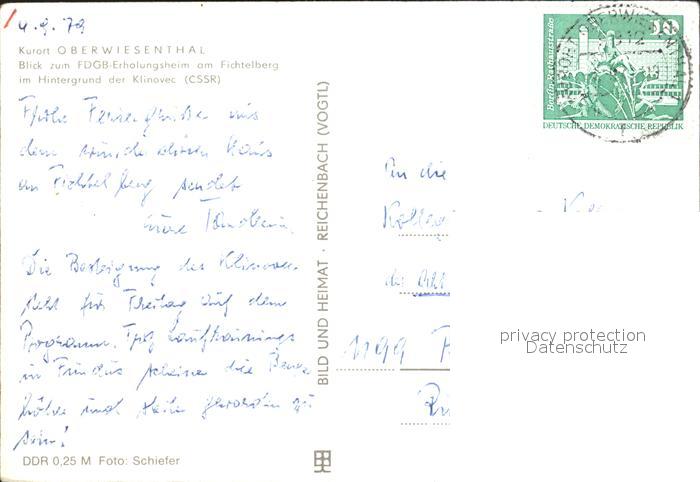 4.9.79
Kurort OBERWIESENTHAL
Blick zum FDGB-Erholungsheim am Fichtelberg
im Hintergrund der Klinovec (CSSR)
Frohe Feriengrüße aus
dem wunderschönen Haus
am Fichtelberg sendet
Eure
Die Besteigung des Klinovec
steht für Freitag auf dem
Programm. Trotz Lauftrainings
in scheinen die Berge
höher und steiler geworden zu
sein!
DDR 0,25 M Foto: Schiefer
BILD UND HEIMAT · REICHENBACH (VOGTL)
Berlin, Rathausstraße
10
DEUTSCHE DEMOKRATISCHE REPUBLIK
An die
Kolleg
der
1199
privacy protection
Datenschutz